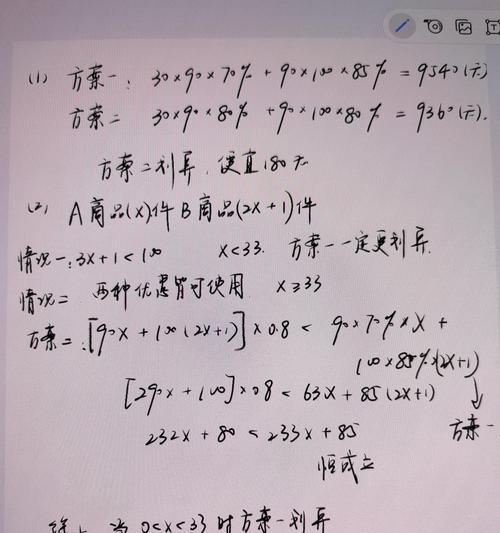 (1) 方案一: 30×90×70% + 90×100×85% = 9540(元).
方案二 30×90×80% + 90×100×80% = 9360(元).
方案二划算, 便宜180元
(2) A商品(x)件 B商品(2x+1)件
情况一: 3x+1<100 x<33. 方案一一定更划算.
情况二 两种优惠皆可使用. x≥33
方案二: [90x+100(2x+1)]×0.8 < 90×70%×x +
100×85%×(2x+1)
[290x+100]×0.8 < 63x+85(2x+1)
方案一
232x+80 < 233x+85
恒成立
综上 当0<x<33时方案一划算